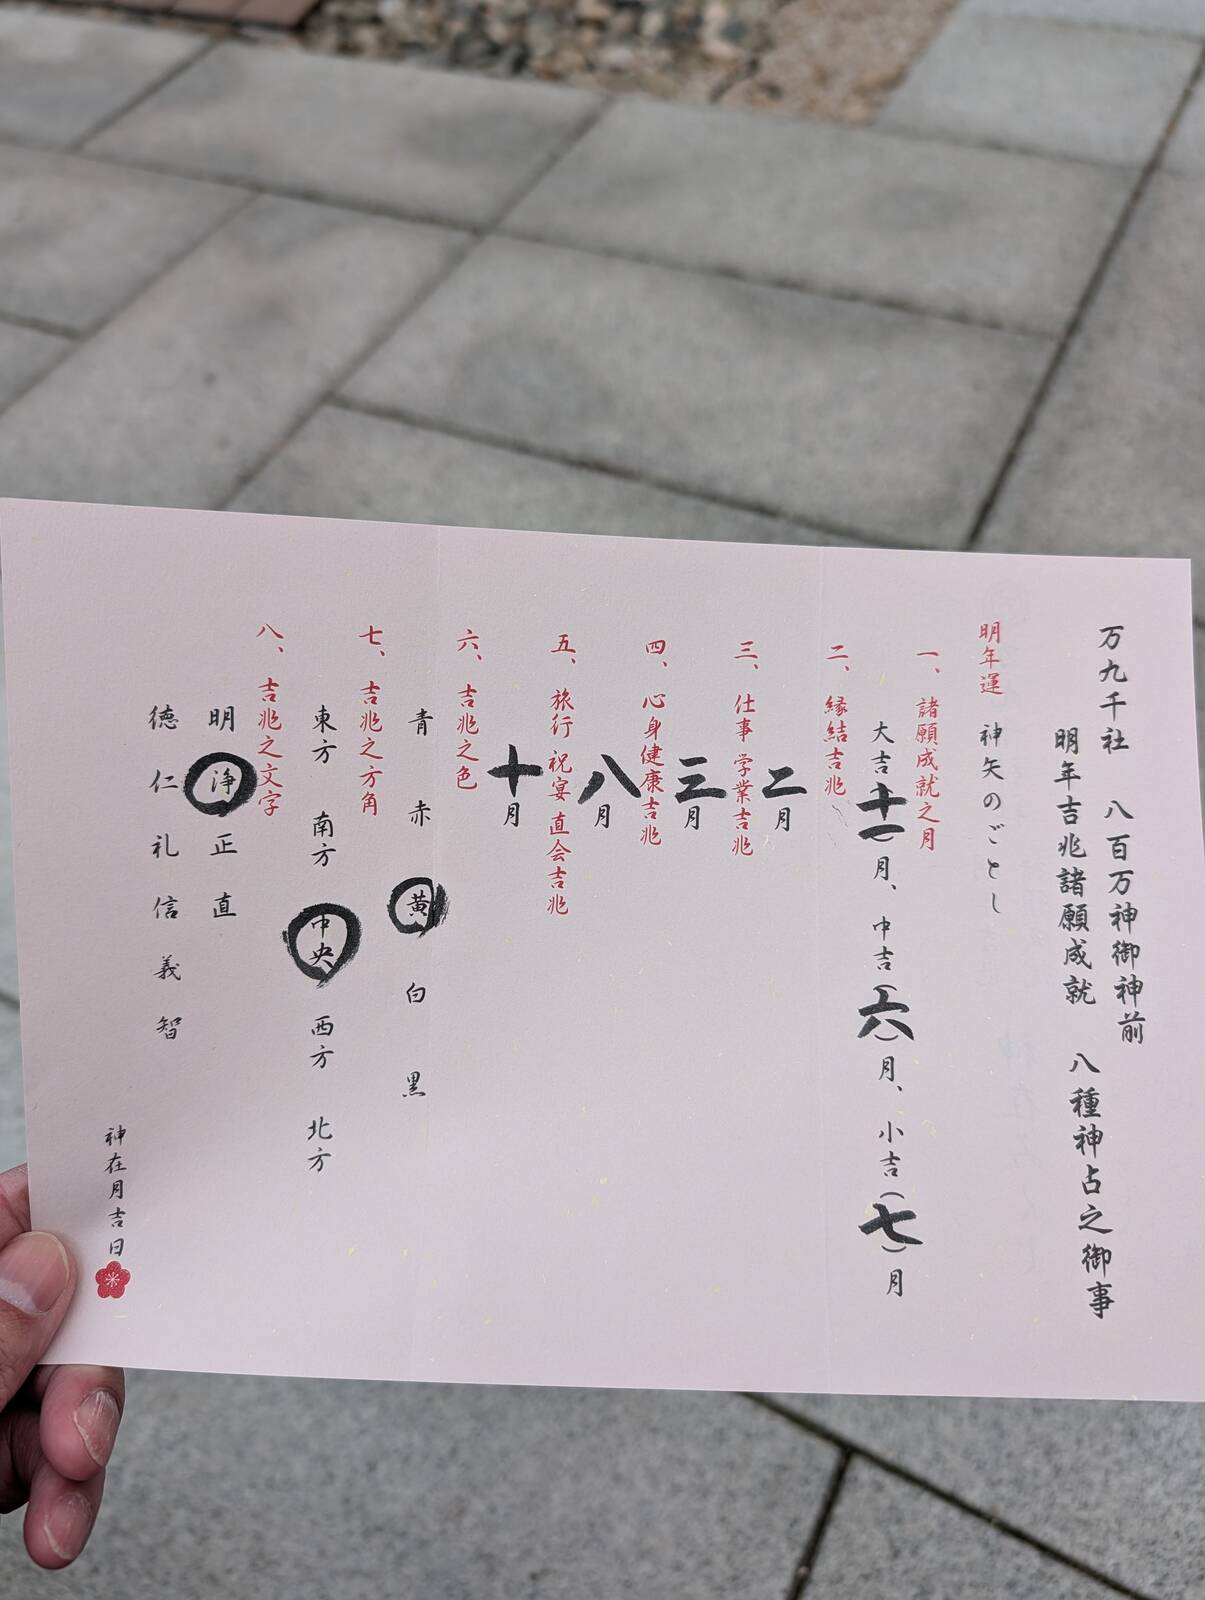 万九千社 八百万神御神前
明年吉兆諸願成就 八種神占之御事
明年運 神矢のごとし
一、諸願成就之月
大吉(十一)月、中吉(六)月、小吉(七)月
二、縁結吉兆
二月
三、仕事 学業吉兆
三月
四、心身健康吉兆
八月
五、旅行 祝宴 直会吉兆
十月
六、吉兆之色
青 赤 黄 白 黒
七、吉兆之方角
東方 南方 中央 西方 北方
八、吉兆之文字
明 浄 正 直
徳 仁 礼 信 義 智
神在月吉日